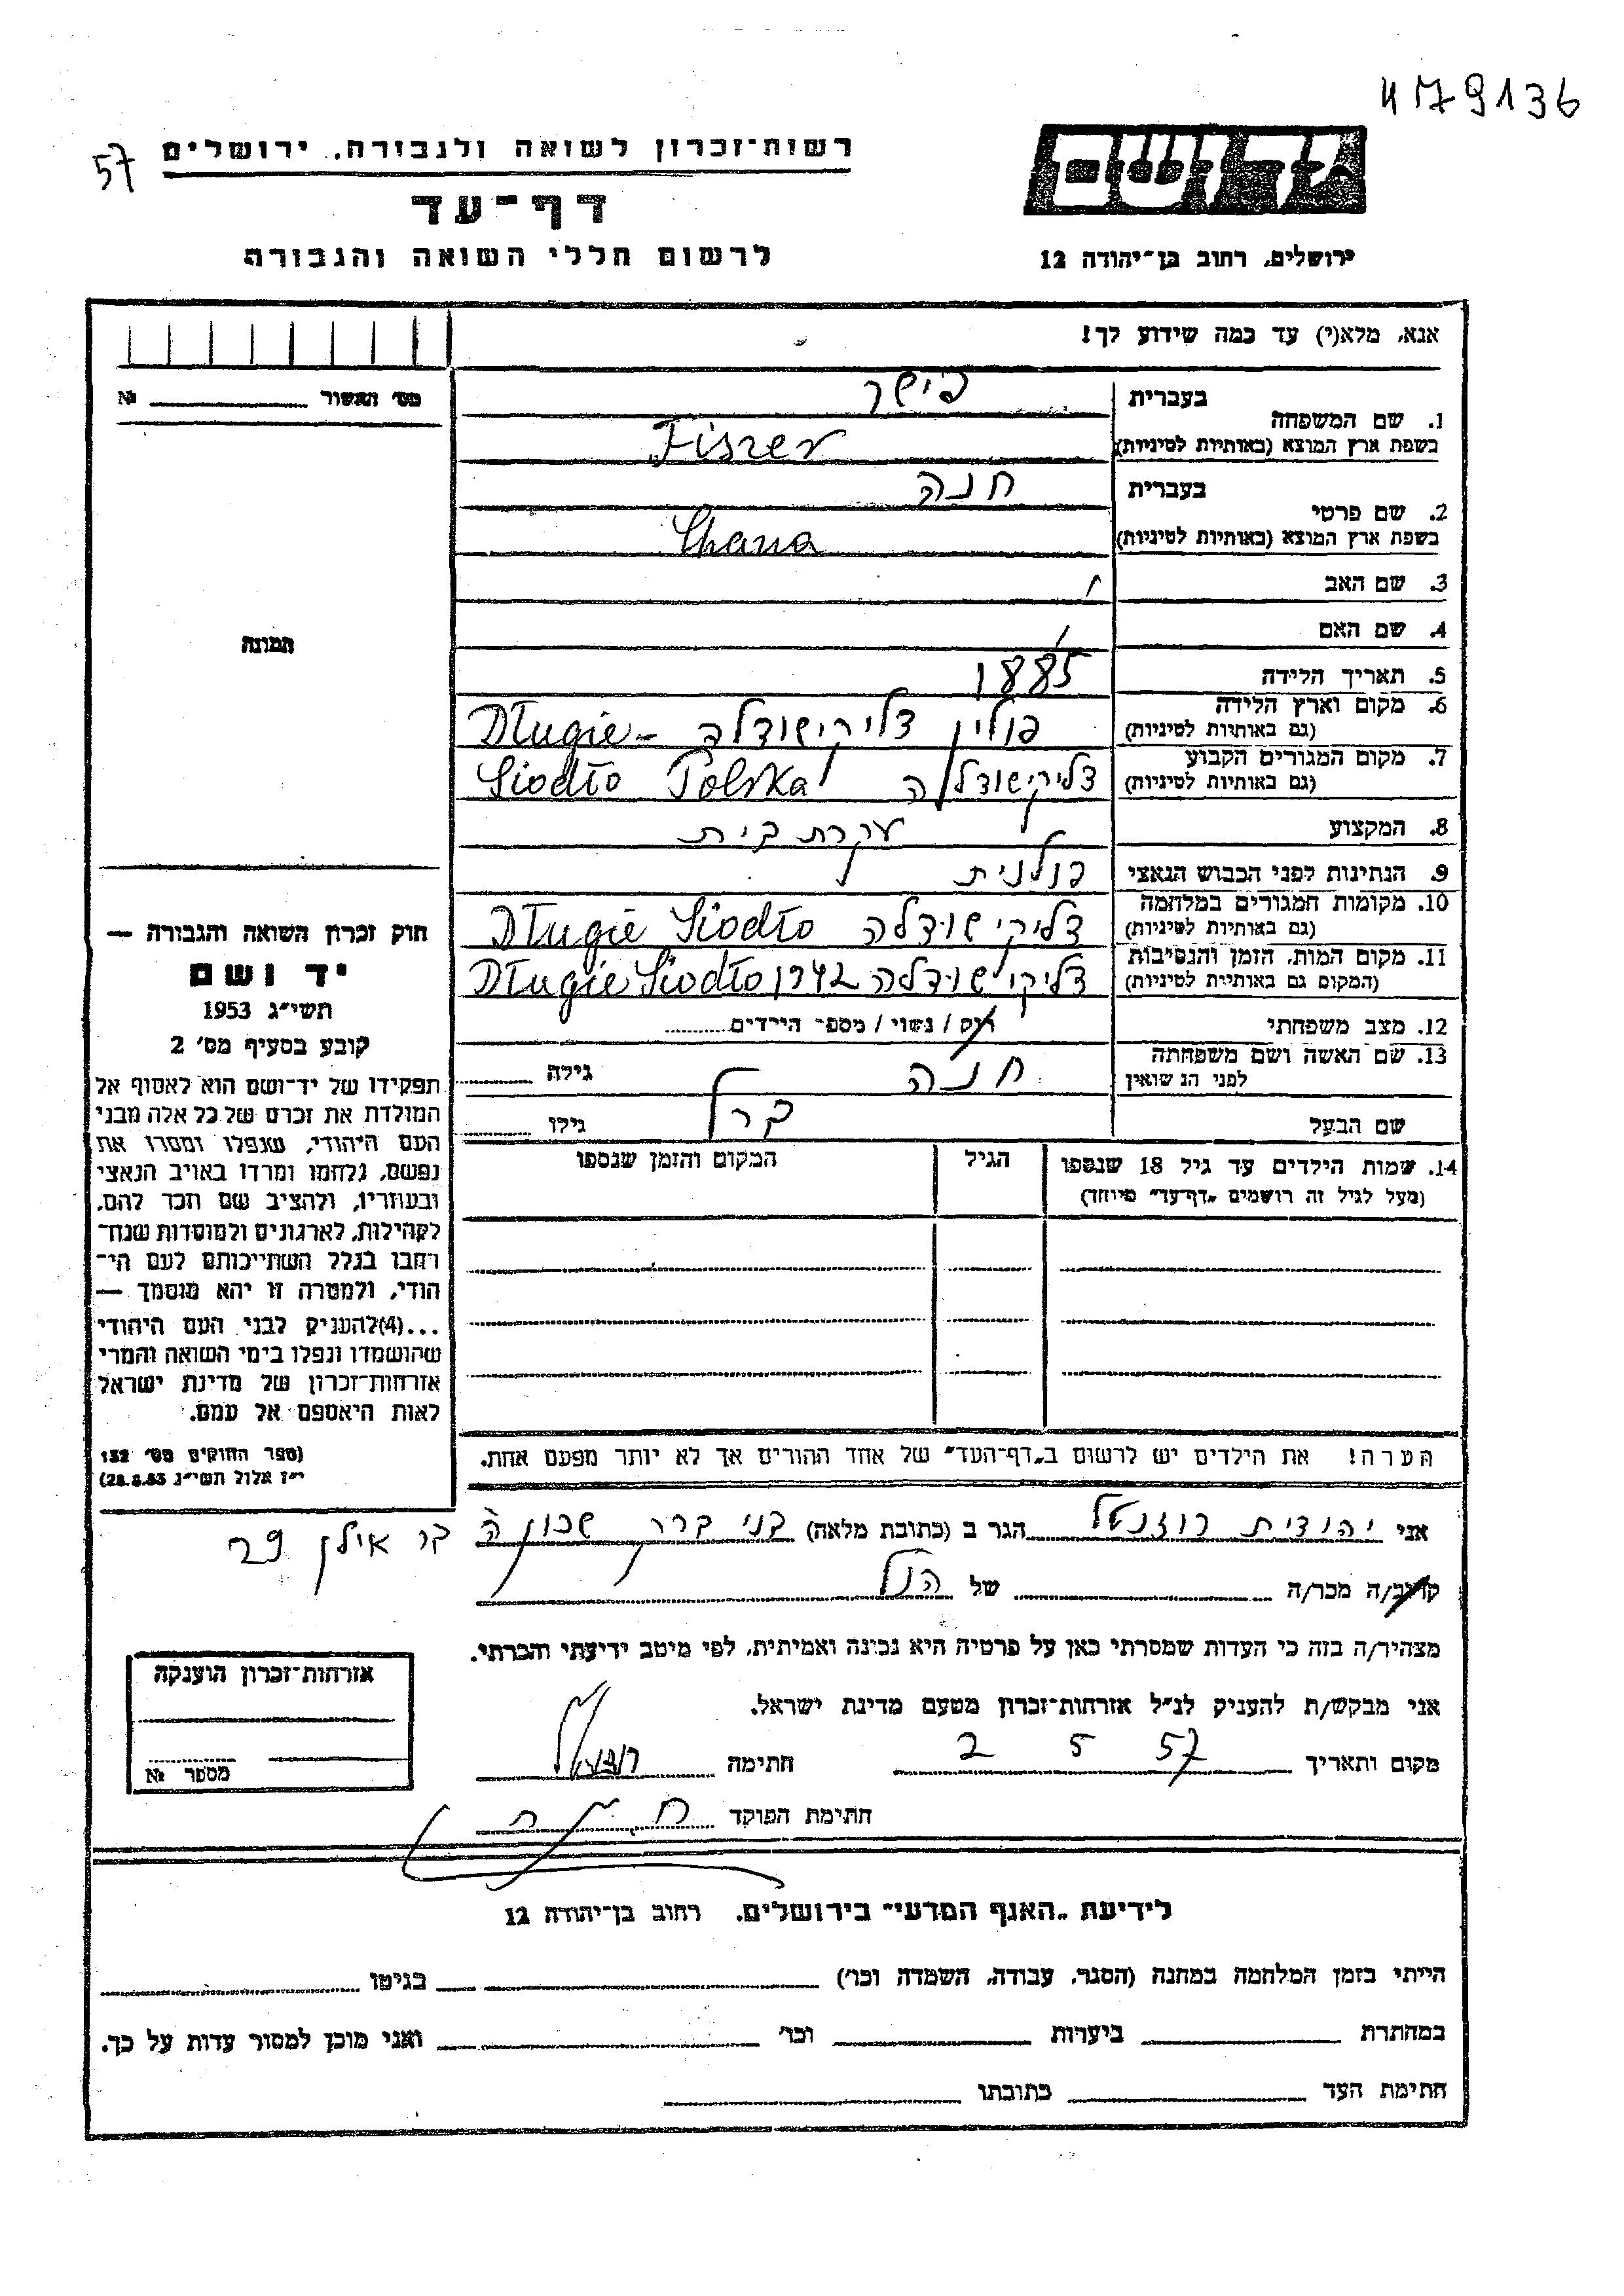 479136
57
רשות־זכרון לשואה ולגבורה, ירושלים
דף־עד
לרשום חללי השואה והגבורה
יד ושם
ירושלים, רחוב בן־יהודה 12
אנא, מלא(י) עד כמה שידוע לך!
מס' האשור № 
1. שם המשפחה
בעברית פישר
בשפת ארץ המוצא (באותיות לטיניות) Fiszer
2. שם פרטי
בעברית חנה
בשפת ארץ המוצא (באותיות לטיניות) Chana
3. שם האב /
4. שם האם /
5. תאריך הלידה 1885
6. מקום וארץ הלידה פולין דלוקישודלה Długie-
(גם באותיות לטיניות)
7. מקום המגורים הקבוע דלוקישודלה Siodło Polska
(גם באותיות לטיניות)
8. המקצוע עקרת בית
9. הנתינות לפני הכבוש הנאצי פולנית
10. מקומות המגורים במלחמה דלוקישודלה Długie Siodło
(גם באותיות לטיניות)
11. מקום המות, הזמן והנסיבות דלוקישודלה 1942 Długie Siodło
(המקום גם באותיות לטיניות)
12. מצב משפחתי רוק / נשוי / מספר הילדים
13. שם האשה ושם משפחתה חנה גילה
לפני הנשואין
שם הבעל ברל גילו
14. שמות הילדים עד גיל 18 שנספו הגיל המקום והזמן שנספו
(מעל לגיל זה רושמים "דף־עד" מיוחד)
הערה! את הילדים יש לרשום ב"דף־העד" של אחד ההורים אך לא יותר מפעם אחת.
תמונה
חוק זכרון השואה והגבורה —
יד ושם
תשי"ג 1953
קובע בסעיף מס' 2
תפקידו של יד־ושם הוא לאסוף אל
המולדת את זכרם של כל אלה מבני
העם היהודי, שנפלו ומסרו את
נפשם, נלחמו ומרדו באויב הנאצי
ובעוזריו, ולהציב שם וזכר להם,
לקהילות, לארגונים ולמוסדות שנח־
רבו בגלל השתייכותם לעם הי־
הודי, ולמטרה זו יהא מוסמך —
...(4)להעניק לבני העם היהודי
שהושמדו ונפלו בימי השואה והמרי
אזרחות־זכרון של מדינת ישראל
לאות היאספם אל עמם.
(ספר החוקים מס' 132
י"ז אלול תשי"ג 28.8.53)
אני יהודית רוזנטל הגר ב (כתובת מלאה) בני ברק שכונה ה בר אילן 29
קרוב/ה מכר/ה של הנ"ל
מצהיר/ה בזה כי העדות שמסרתי כאן על פרטיה היא נכונה ואמיתית, לפי מיטב ידיעתי והכרתי.
אני מבקש/ת להעניק לנ"ל אזרחות־זכרון מטעם מדינת ישראל.
מקום ותאריך 2 5 57 חתימה
חתימת הפוקד
אזרחות־זכרון הוענקה
מספר №
לידיעת "האגף המדעי" בירושלים, רחוב בן־יהודה 12
הייתי בזמן המלחמה במחנה (הסגר, עבודה, השמדה וכו') בגיטו
במחתרת ביערות וכו' ואני מוכן למסור עדות על כך.
חתימת העד כתובתו